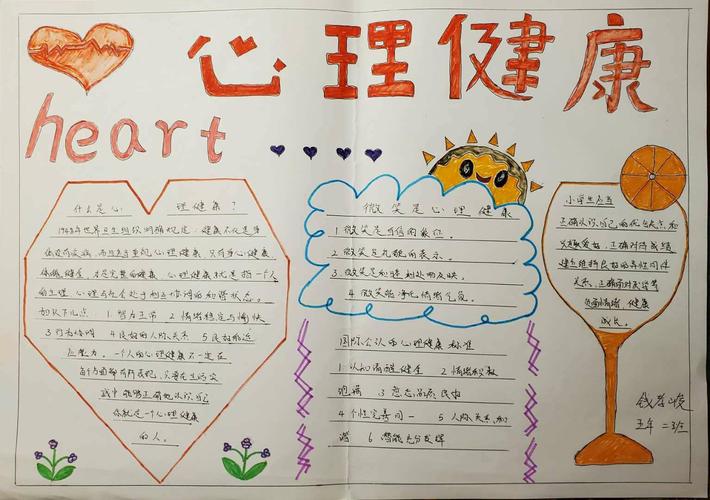 心理健康
heart
什么是心理健康？
1948年世界卫生组织明确规定，健康不仅是身
体没有疾病，而且还要重视心理健康，只有身心健康
体魄健全，才是完整的健康。心理健康就是指一个人
的生理、心理与社会处于相互协调的和谐状态。
如以下几点 1 智力正常 2 情绪稳定与愉快
3 行为协调 4 良好的人际关系 5 良好的适
应能力。一个人的心理健康不一定在
每个方面都有所表现，只要在生活实
践中能够正确地认识自己
你就是一个心理健康
的人。
微笑是心理健康
1 微笑是自信的象征
2 微笑是礼貌的表示。
3 微笑是和睦相处的反映。
4 微笑能净化情绪
国际公认的心理健康标准
1 认知清醒健全 2 情绪积极
饱满 3 意志品质
4 个性完善同一 5 人际关系和
谐 6 潜能充分发挥
小学生应当
正确认识自己的优点和
兴趣爱好，正确对待成绩
建立维持良好的异性同伴
关系，正确
负面情绪 健康
成长。
五年二班